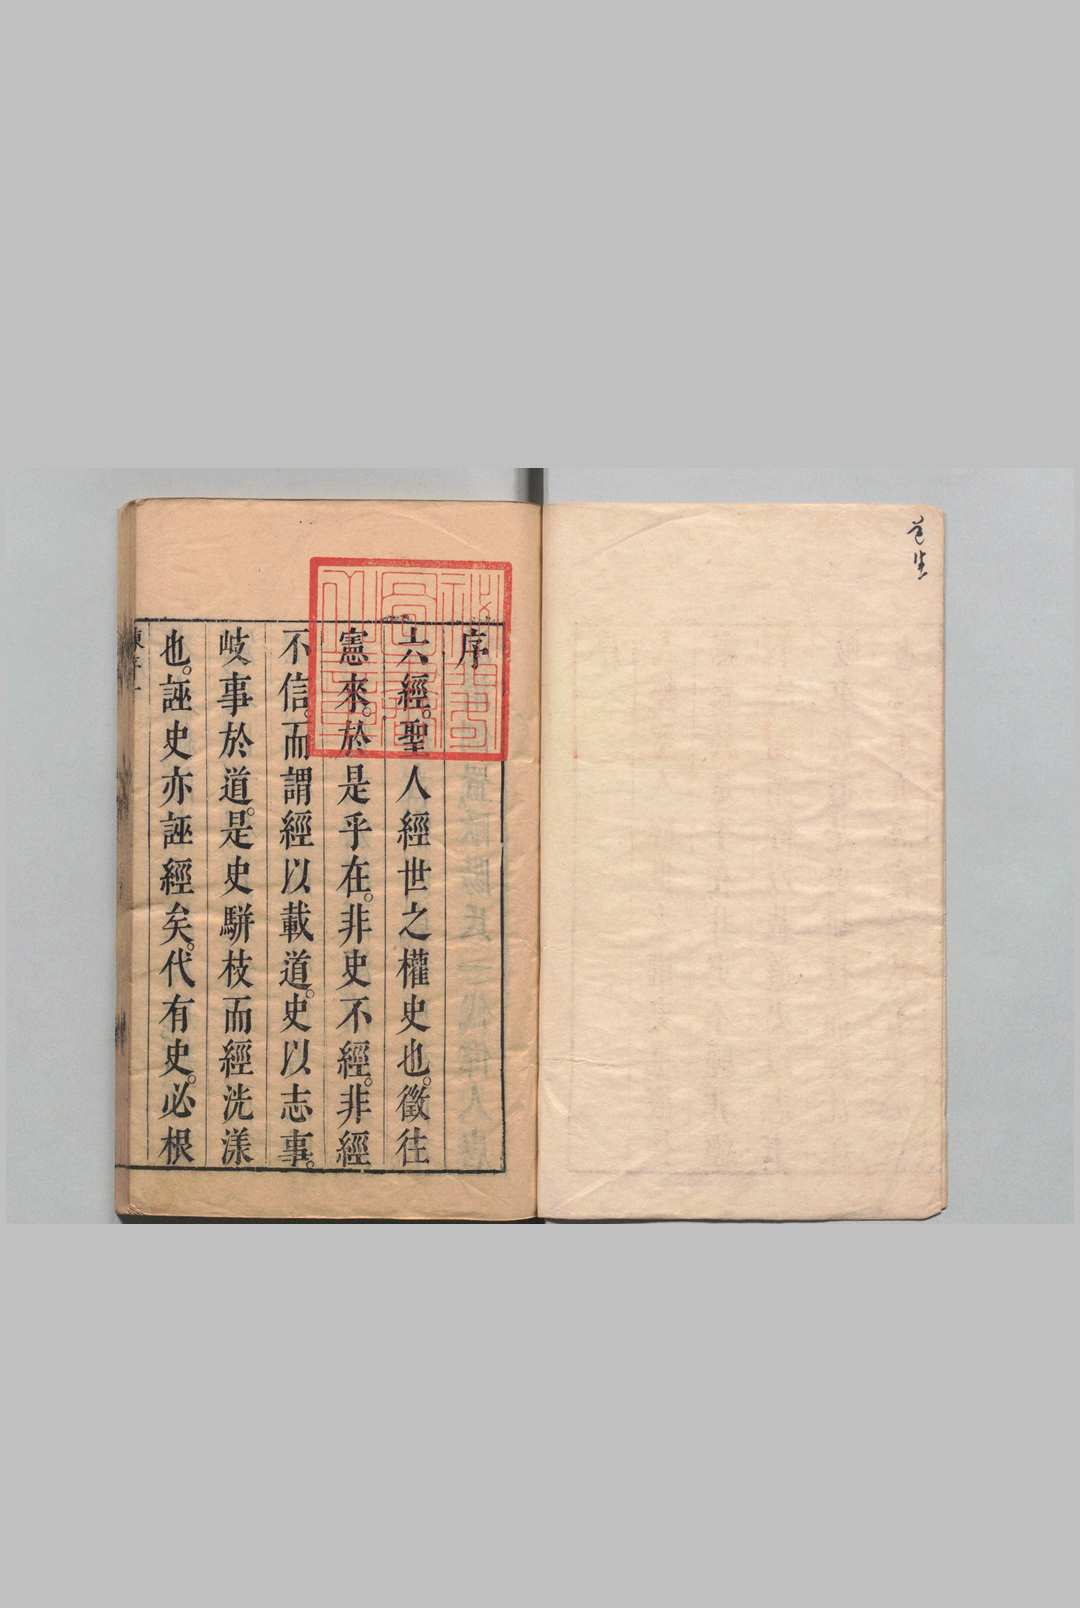 序
六經。聖人經世之權史也。徵往
憲來。於是乎在。非史不經。非經
不信。而謂經以載道。史以志事。
岐事於道。是史駢枝而經洸漾
也。誣史亦誣經矣。代有史。必根